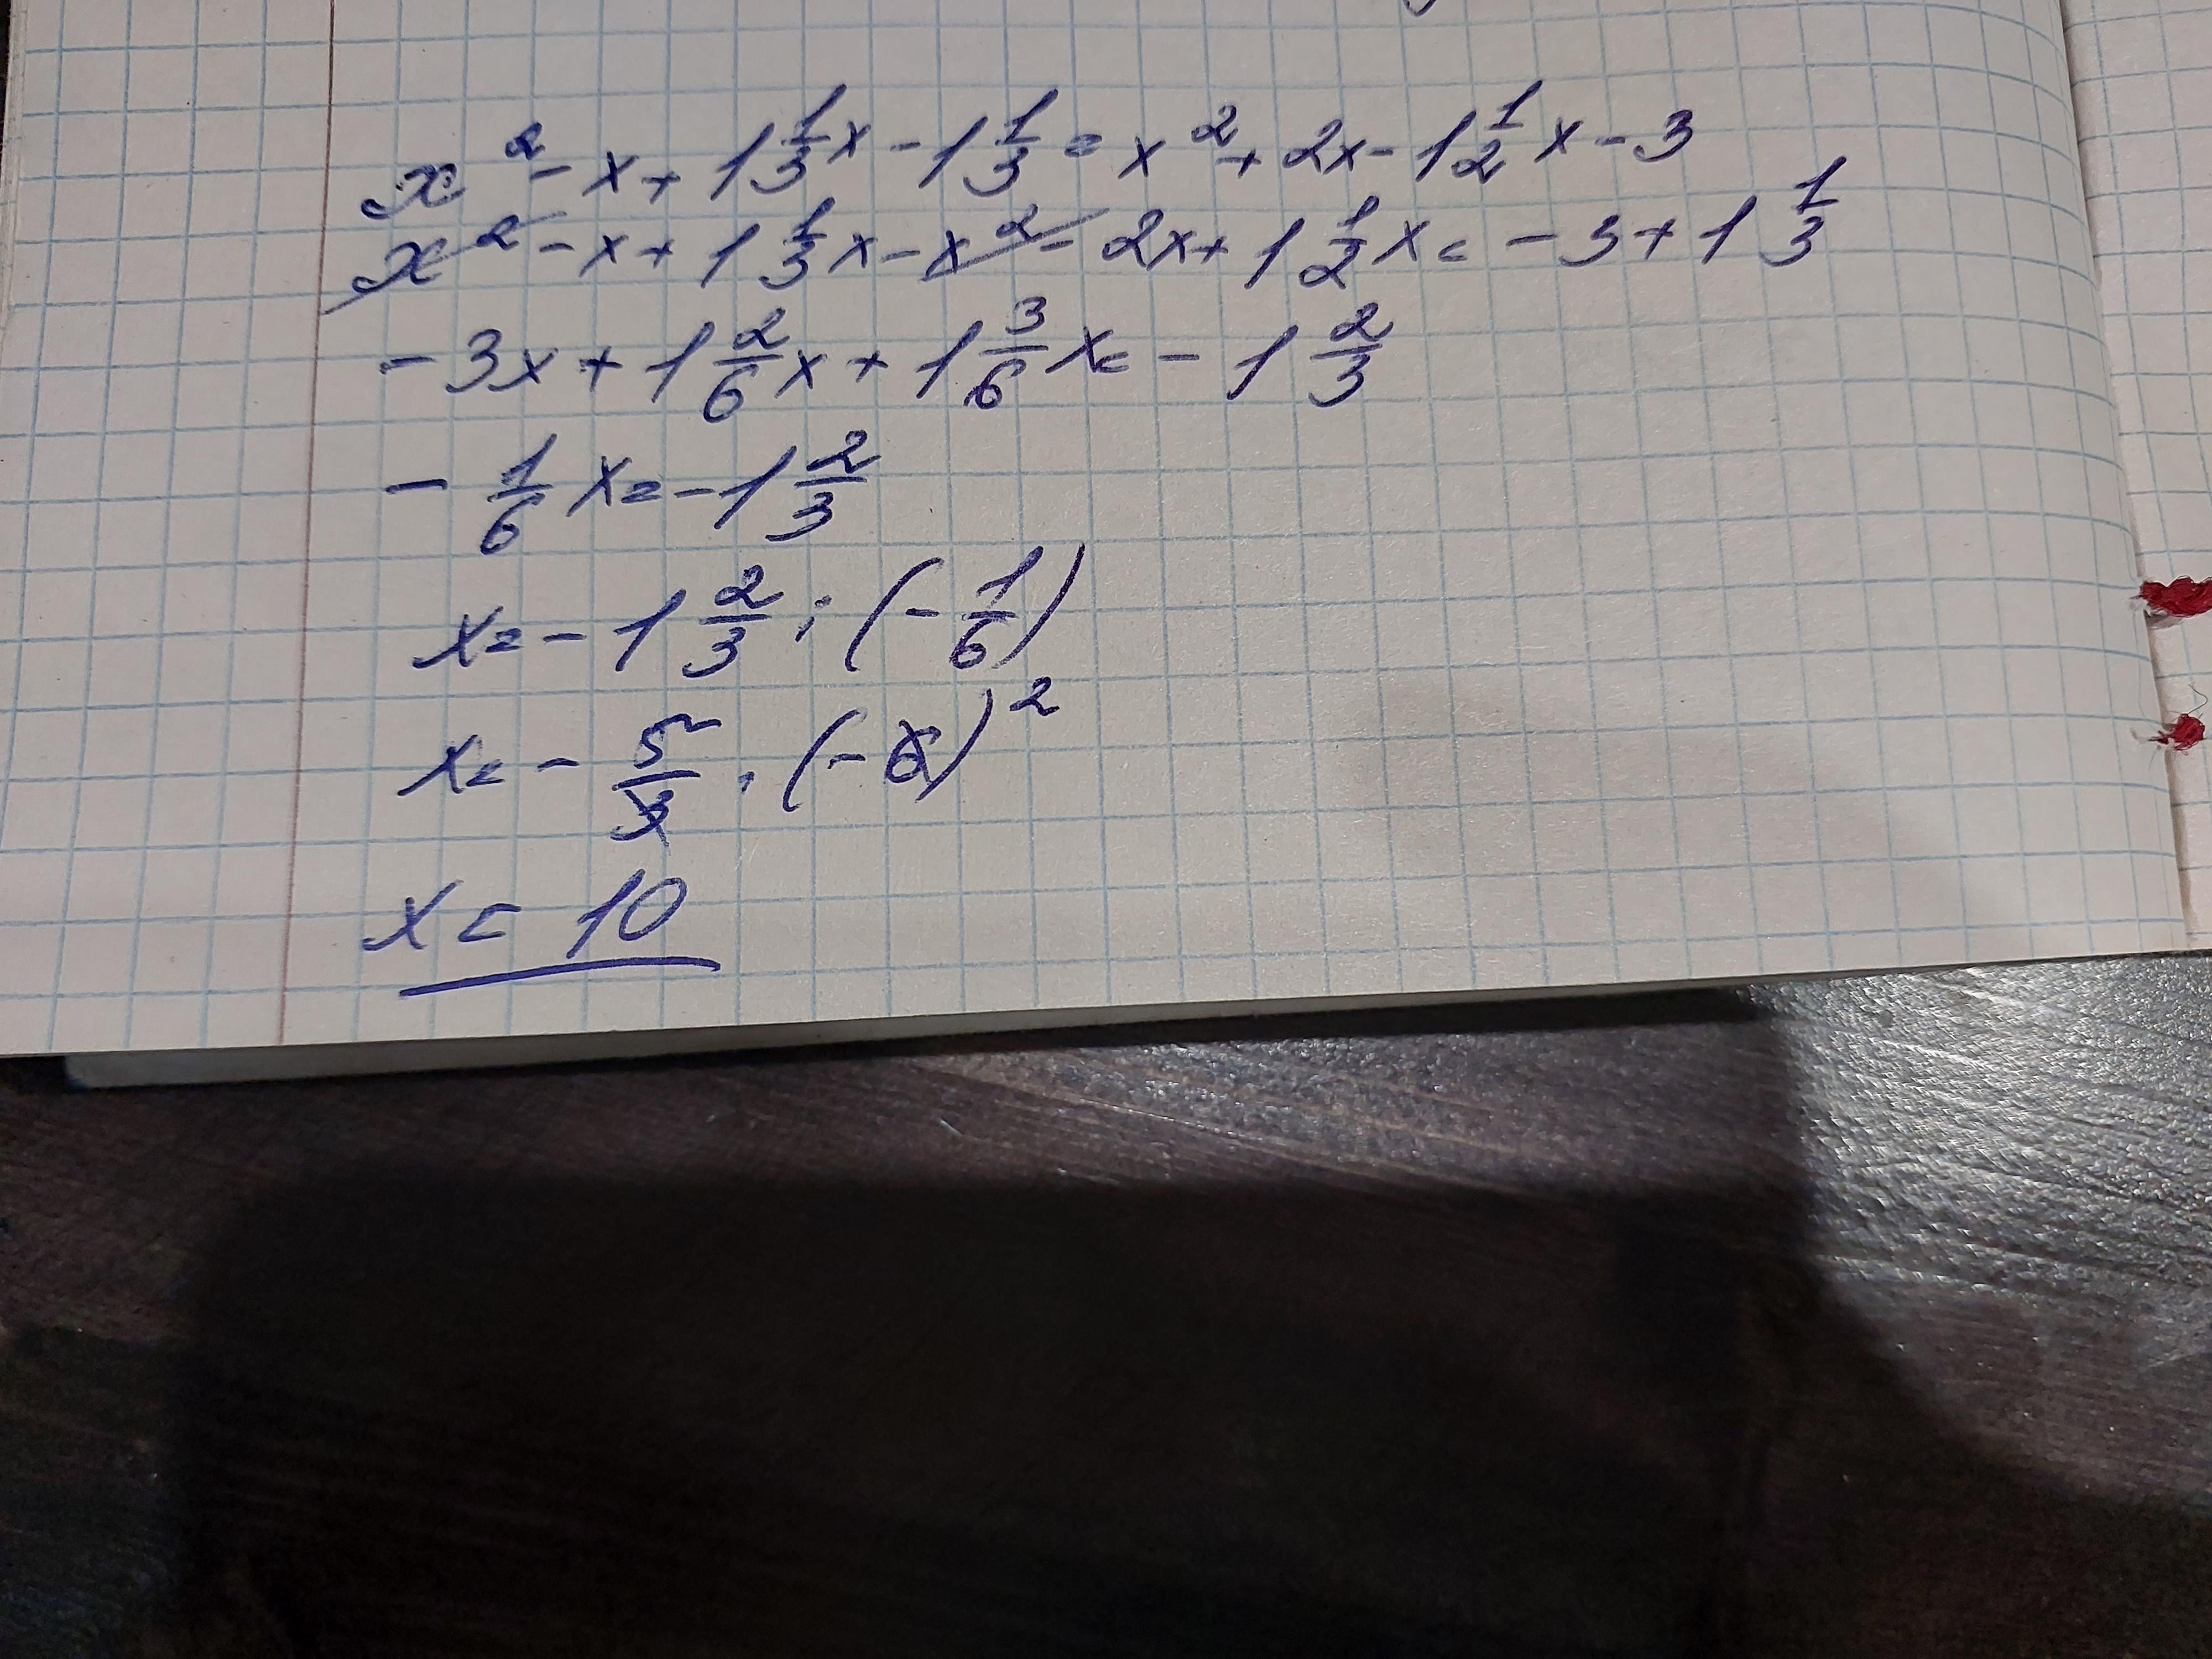 x² - x + 1 1/3 x - 1 1/3 = x² + 2x - 1 1/2 x - 3
x² - x + 1 1/3 x - x² - 2x + 1 1/2 x = -3 + 1 1/3
-3x + 1 2/6 x + 1 3/6 x = -1 2/3
-1/6 x = -1 2/3
x = -1 2/3 : (-1/6)
x = -5/3 · (-6) 2
x = 10